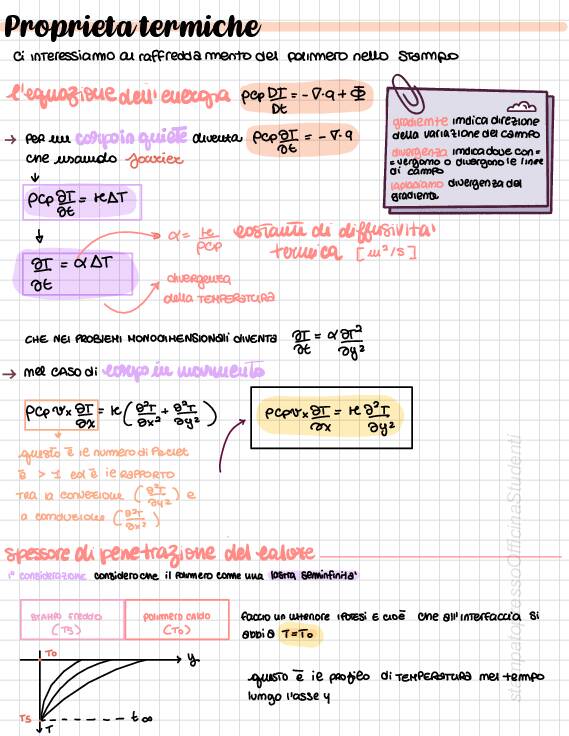 Proprieta termiche
Ci interessiamo al raffreddamento del polimero nello stampo
l'equazione dell'energia ρcp DT/Dt = -∇·q + Φ
→ per un corpo in quiete diventa ρcp ∂T/∂t = -∇·q
che usando fourier
gradiente indica direzione
della variazione del campo
divergenza indica dove con=
=vergono o divergono le linee
di campo
laplaciano divergenza del
gradiente
ρcp ∂T/∂t = k ΔT
∂T/∂t = α ΔT
α = k/ρcp costante di diffusivita'
termica [m²/s]
divergenza
della TEMPERATURA
CHE NEI PROBLEMI MONODIMENSIONALI DIVENTA ∂T/∂t = α ∂T²/∂y²
→ nel CASO di corpo in movimento
ρcp vx ∂T/∂x = k (∂²T/∂x² + ∂²T/∂y²)
ρcp vx ∂T/∂x = k ∂²T/∂y²
questo è il numero di Peclet
è > 1 ed è il RAPPORTO
TRA la CONVEZIONE (∂²T/∂y²) e
a conduzione (∂²T/∂x²)
spessore di penetrazione del calore
1° considerazione considero che il polimero come una lastra seminfinita'
STAMPO FREDDO
(Ts)
polimero caldo
(To)
faccio un'ulteriore ipotesi e cioè che all'interfaccia si
abbia T=To
To
y
Ts
t∞
T
questo è il profilo di TEMPERATURA nel tempo
lungo l'asse y
stampatopressoOfficinaStudenti